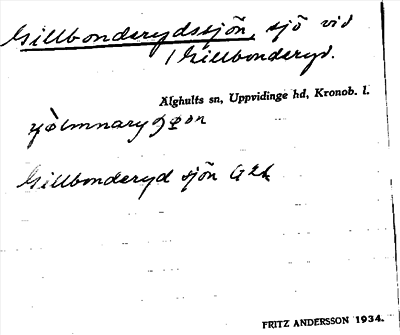 Gillbonderydssjön, sjö vid
Gillbonderyd.
Älghults sn, Uppvidinge hd, Kronob. l.
Gillbonderyd sjön
FRITZ ANDERSSON 1934.